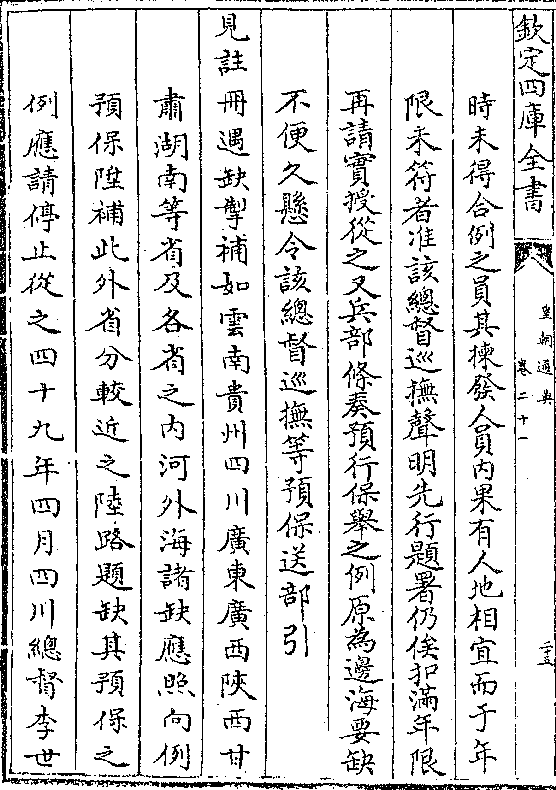 欽定四庫全書
皇朝通典
卷二十一
二十五
時未得合例之員其揀發人員內果有人地相宜而于年
限未符者准該總督巡撫聲明先行題署仍俟扣滿年限
再請實授從之又兵部條奏預行保舉之例原為邊海要缺
不便久懸令該總督巡撫等預保送部引
見註冊遇缺掣補如雲南貴州四川廣東廣西陝西甘
肅湖南等省及各省之內河外海諸缺應照向例
預保陞補此外省分較近之陸路題缺其預保之
例應請停止從之四十九年四月四川總督李世